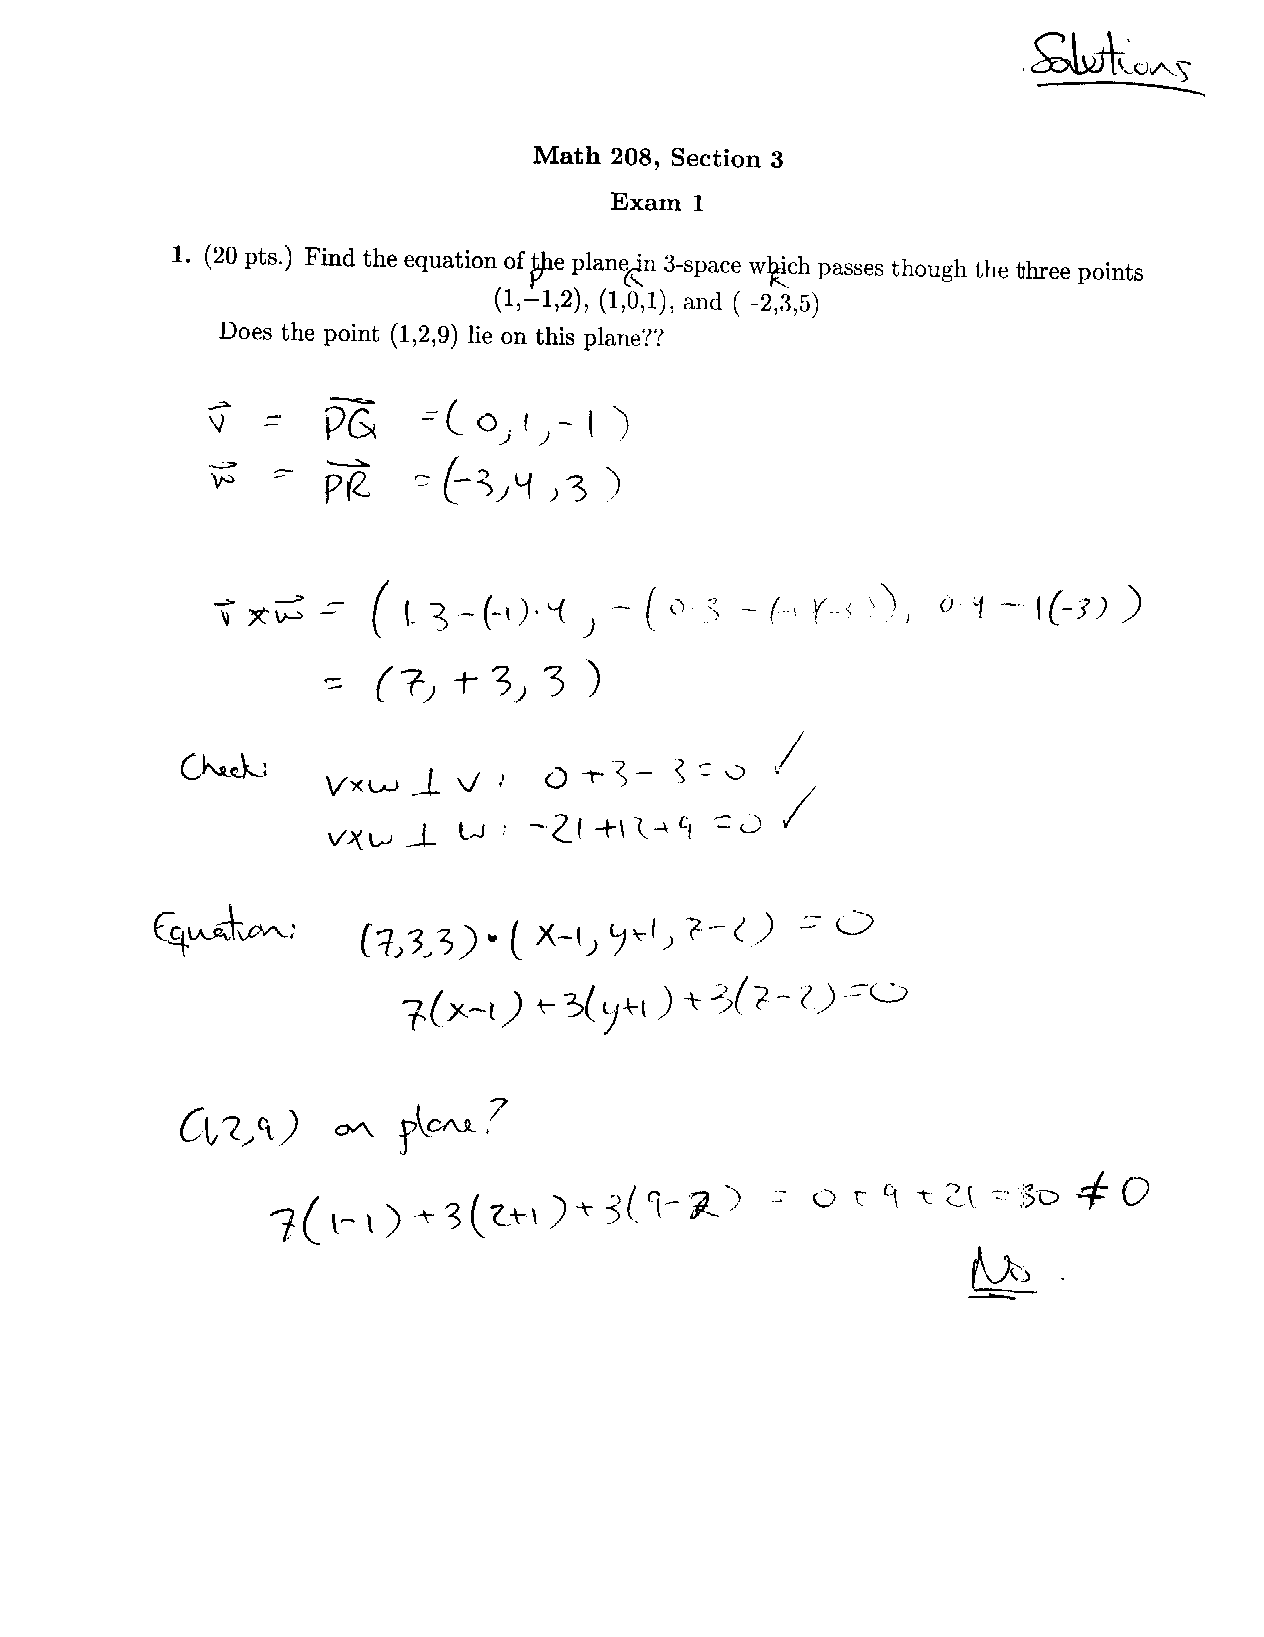 Solutions
Math 208, Section 3
Exam 1
1. (20 pts.) Find the equation of the plane in 3-space which passes though the three points
P Q R
(1,−1,2), (1,0,1), and ( -2,3,5)
Does the point (1,2,9) lie on this plane??
v⃗ = PQ⃗ = (0, 1, -1)
w⃗ = PR⃗ = (-3, 4, 3)
v⃗ × w⃗ = (1·3 - (-1)·4, -(0·3 - (-1)(-3)), 0·4 - 1(-3))
= (7, +3, 3)
Check: v×w ⊥ v: 0+3-3=0 ✓
v×w ⊥ w: -21+12+9=0 ✓
Equation: (7,3,3)•(x-1, y+1, z-2) = 0
7(x-1)+3(y+1)+3(z-2)=0
(1,2,9) on plane?
7(1-1)+3(2+1)+3(9-2) = 0+9+21=30 ≠ 0
No.